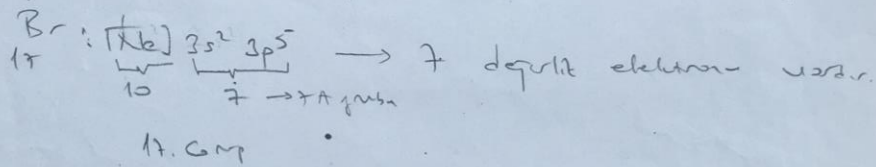 Br : [Ne] 3s² 3p⁵ → 7 değerlik elektronu vardır.
17
10 7 → 7A grubu
17. Grup